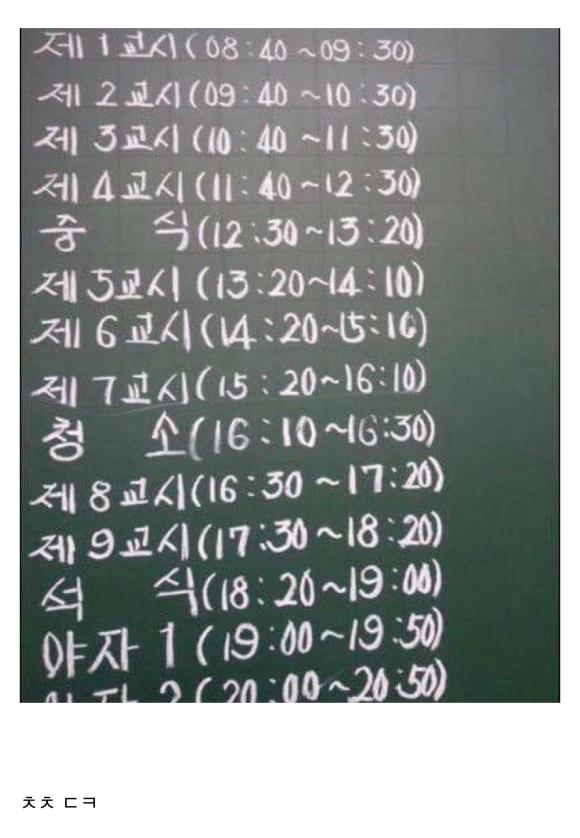 제 1 교시 (08:40 ~09:30)
제 2 교시 (09:40 ~10:30)
제 3 교시 (10:40 ~11:30)
제 4 교시 (11:40 ~12:30)
중 식 (12:30~13:20)
제 5교시 (13:20~14:10)
제 6 교시 (14:20~15:10)
제 7 교시 (15:20~16:10)
청 소 (16:10~16:30)
제 8 교시 (16:30 ~17:20)
제 9 교시 (17:30~18:20)
석 식 (18:20~19:00)
야자 1 (19:00~19:50)
야자 2 (20:00~20:50)
ㅊㅊ ㄷㅋ